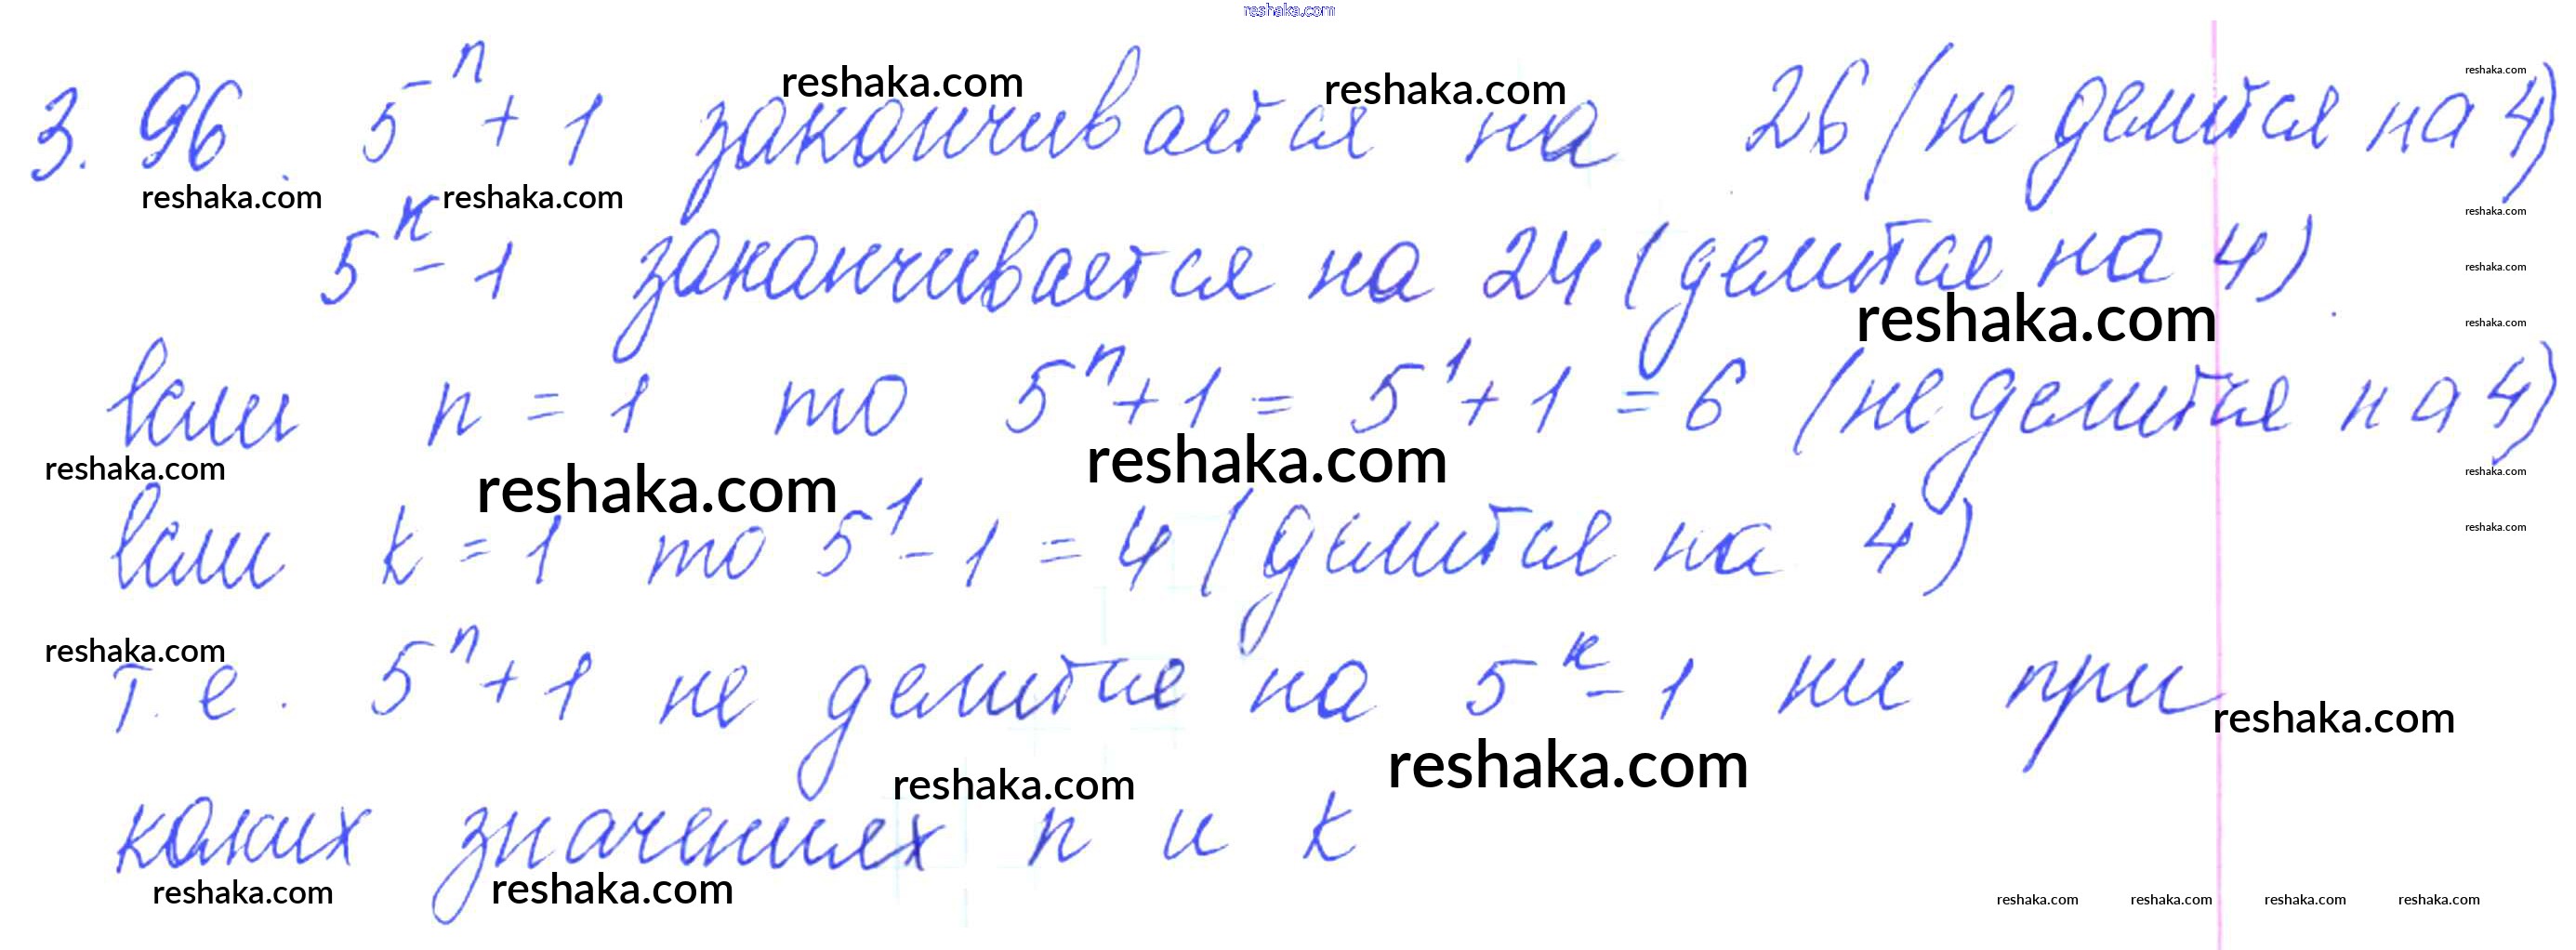 reshaka.com
3.96. 5ⁿ + 1 заканчивается на 26 (не делится на 4)
5ᵏ - 1 заканчивается на 24 (делится на 4).
Если n = 1 то 5ⁿ + 1 = 5¹ + 1 = 6 (не делится на 4)
Если k = 1 то 5¹ - 1 = 4 (делится на 4)
т.е. 5ⁿ + 1 не делится на 5ᵏ - 1 ни при
каких значениях n и k
reshaka.com reshaka.com reshaka.com
reshaka.com reshaka.com reshaka.com
reshaka.com
reshaka.com reshaka.com
reshaka.com reshaka.com reshaka.com reshaka.com
reshaka.com
reshaka.com
reshaka.com reshaka.com
reshaka.com reshaka.com
reshaka.com reshaka.com reshaka.com reshaka.com reshaka.com reshaka.com